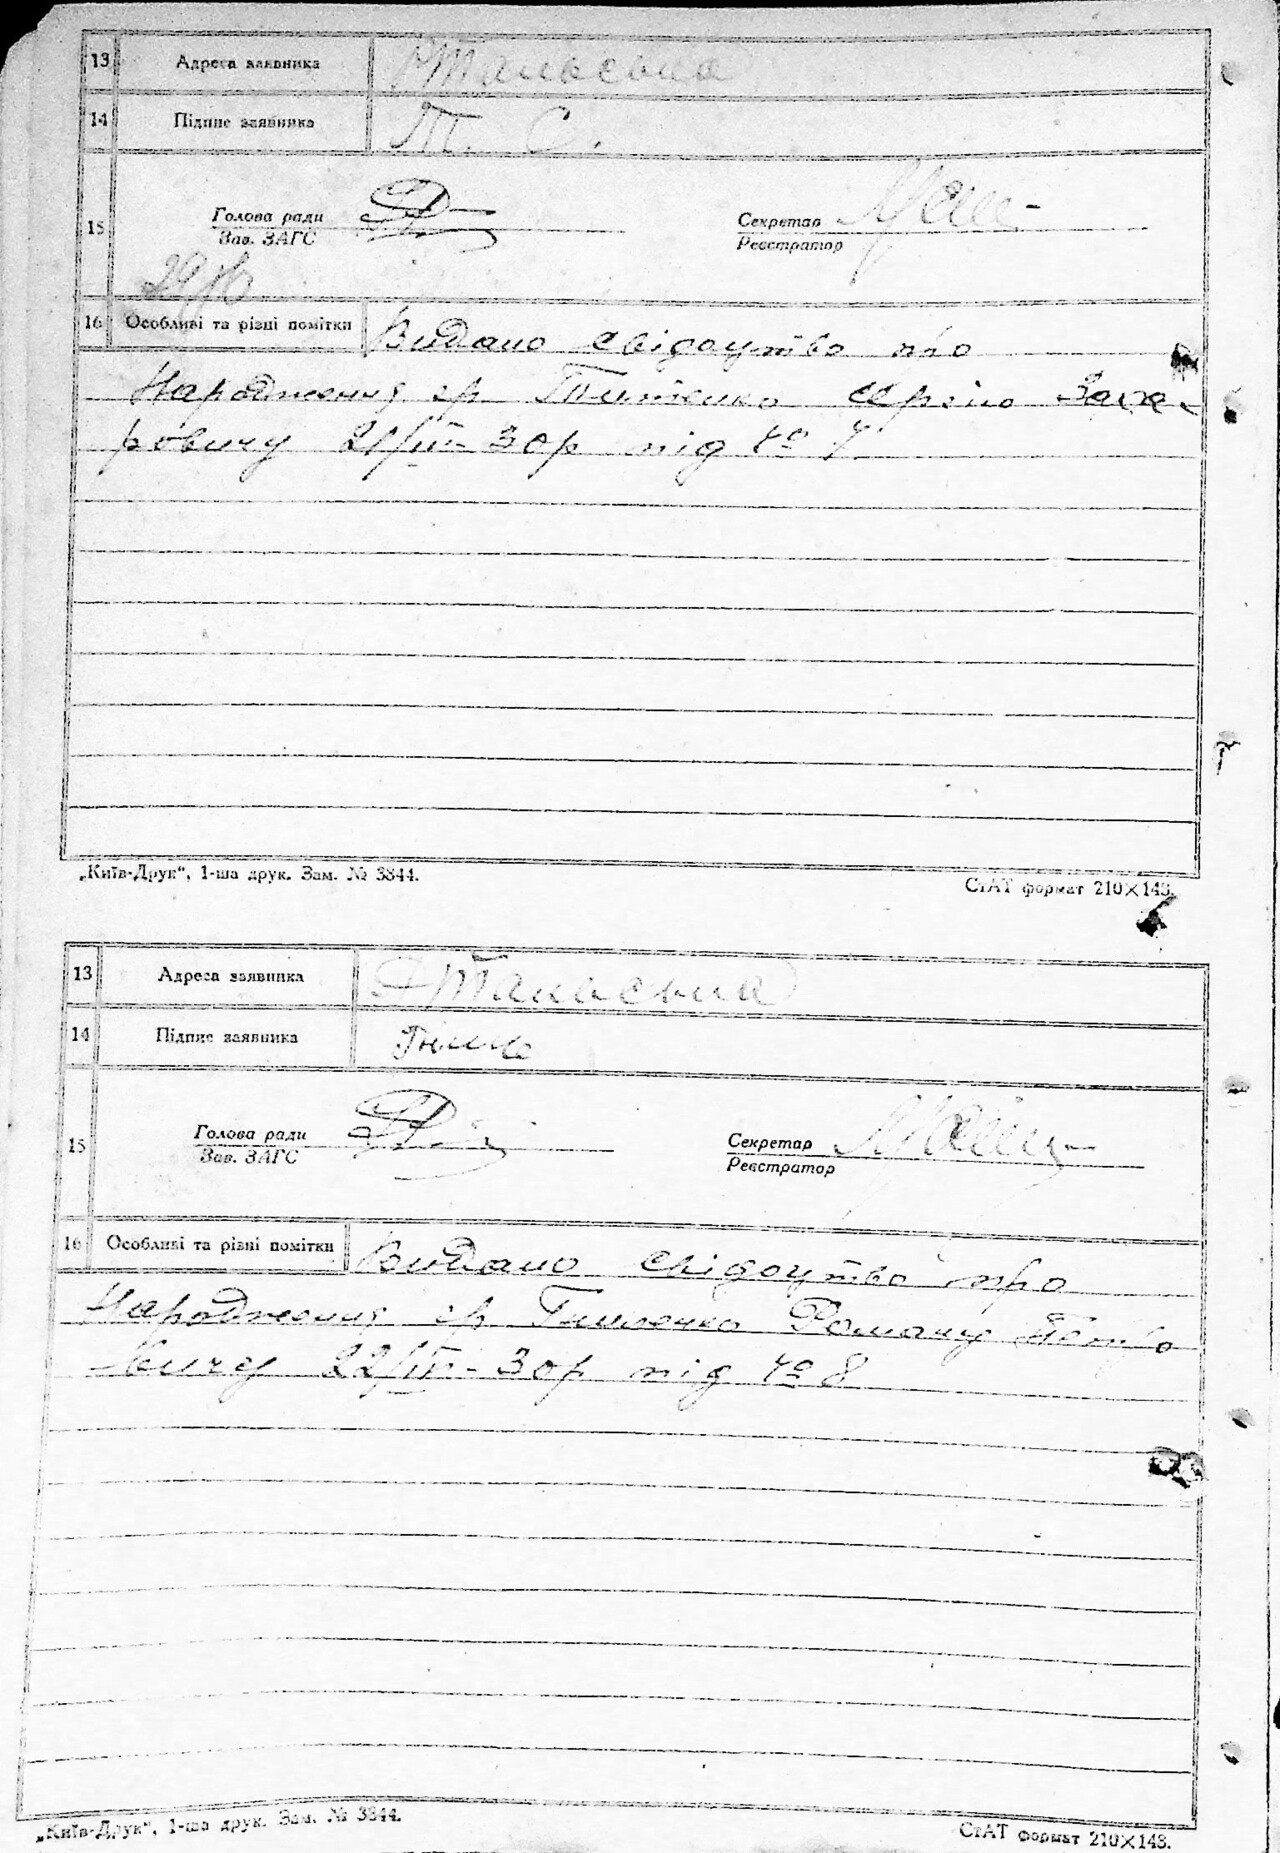 13 Адреса заявника
14 Підпис заявника Т. С.
Голова ради Секретар
15
Зав. ЗАГС Реєстратор
16 Особливі та різні помітки Видано свідоцтво про
Народження гр. Заха-
ровичу 21/III-30р під № 7
„Київ-Друк“, 1-ша друк. Зам. № 3844. СтАТ формат 210×143.
13 Адреса заявника
14 Підпис заявника
Голова ради Секретар
15
Зав. ЗАГС Реєстратор
16 Особливі та різні помітки Видано свідоцтво про
Народження гр. Роману Петро
вичу 22/III-30р під № 8
„Київ-Друк“, 1-ша друк. Зам. № 3844. СтАТ формат 210×143.